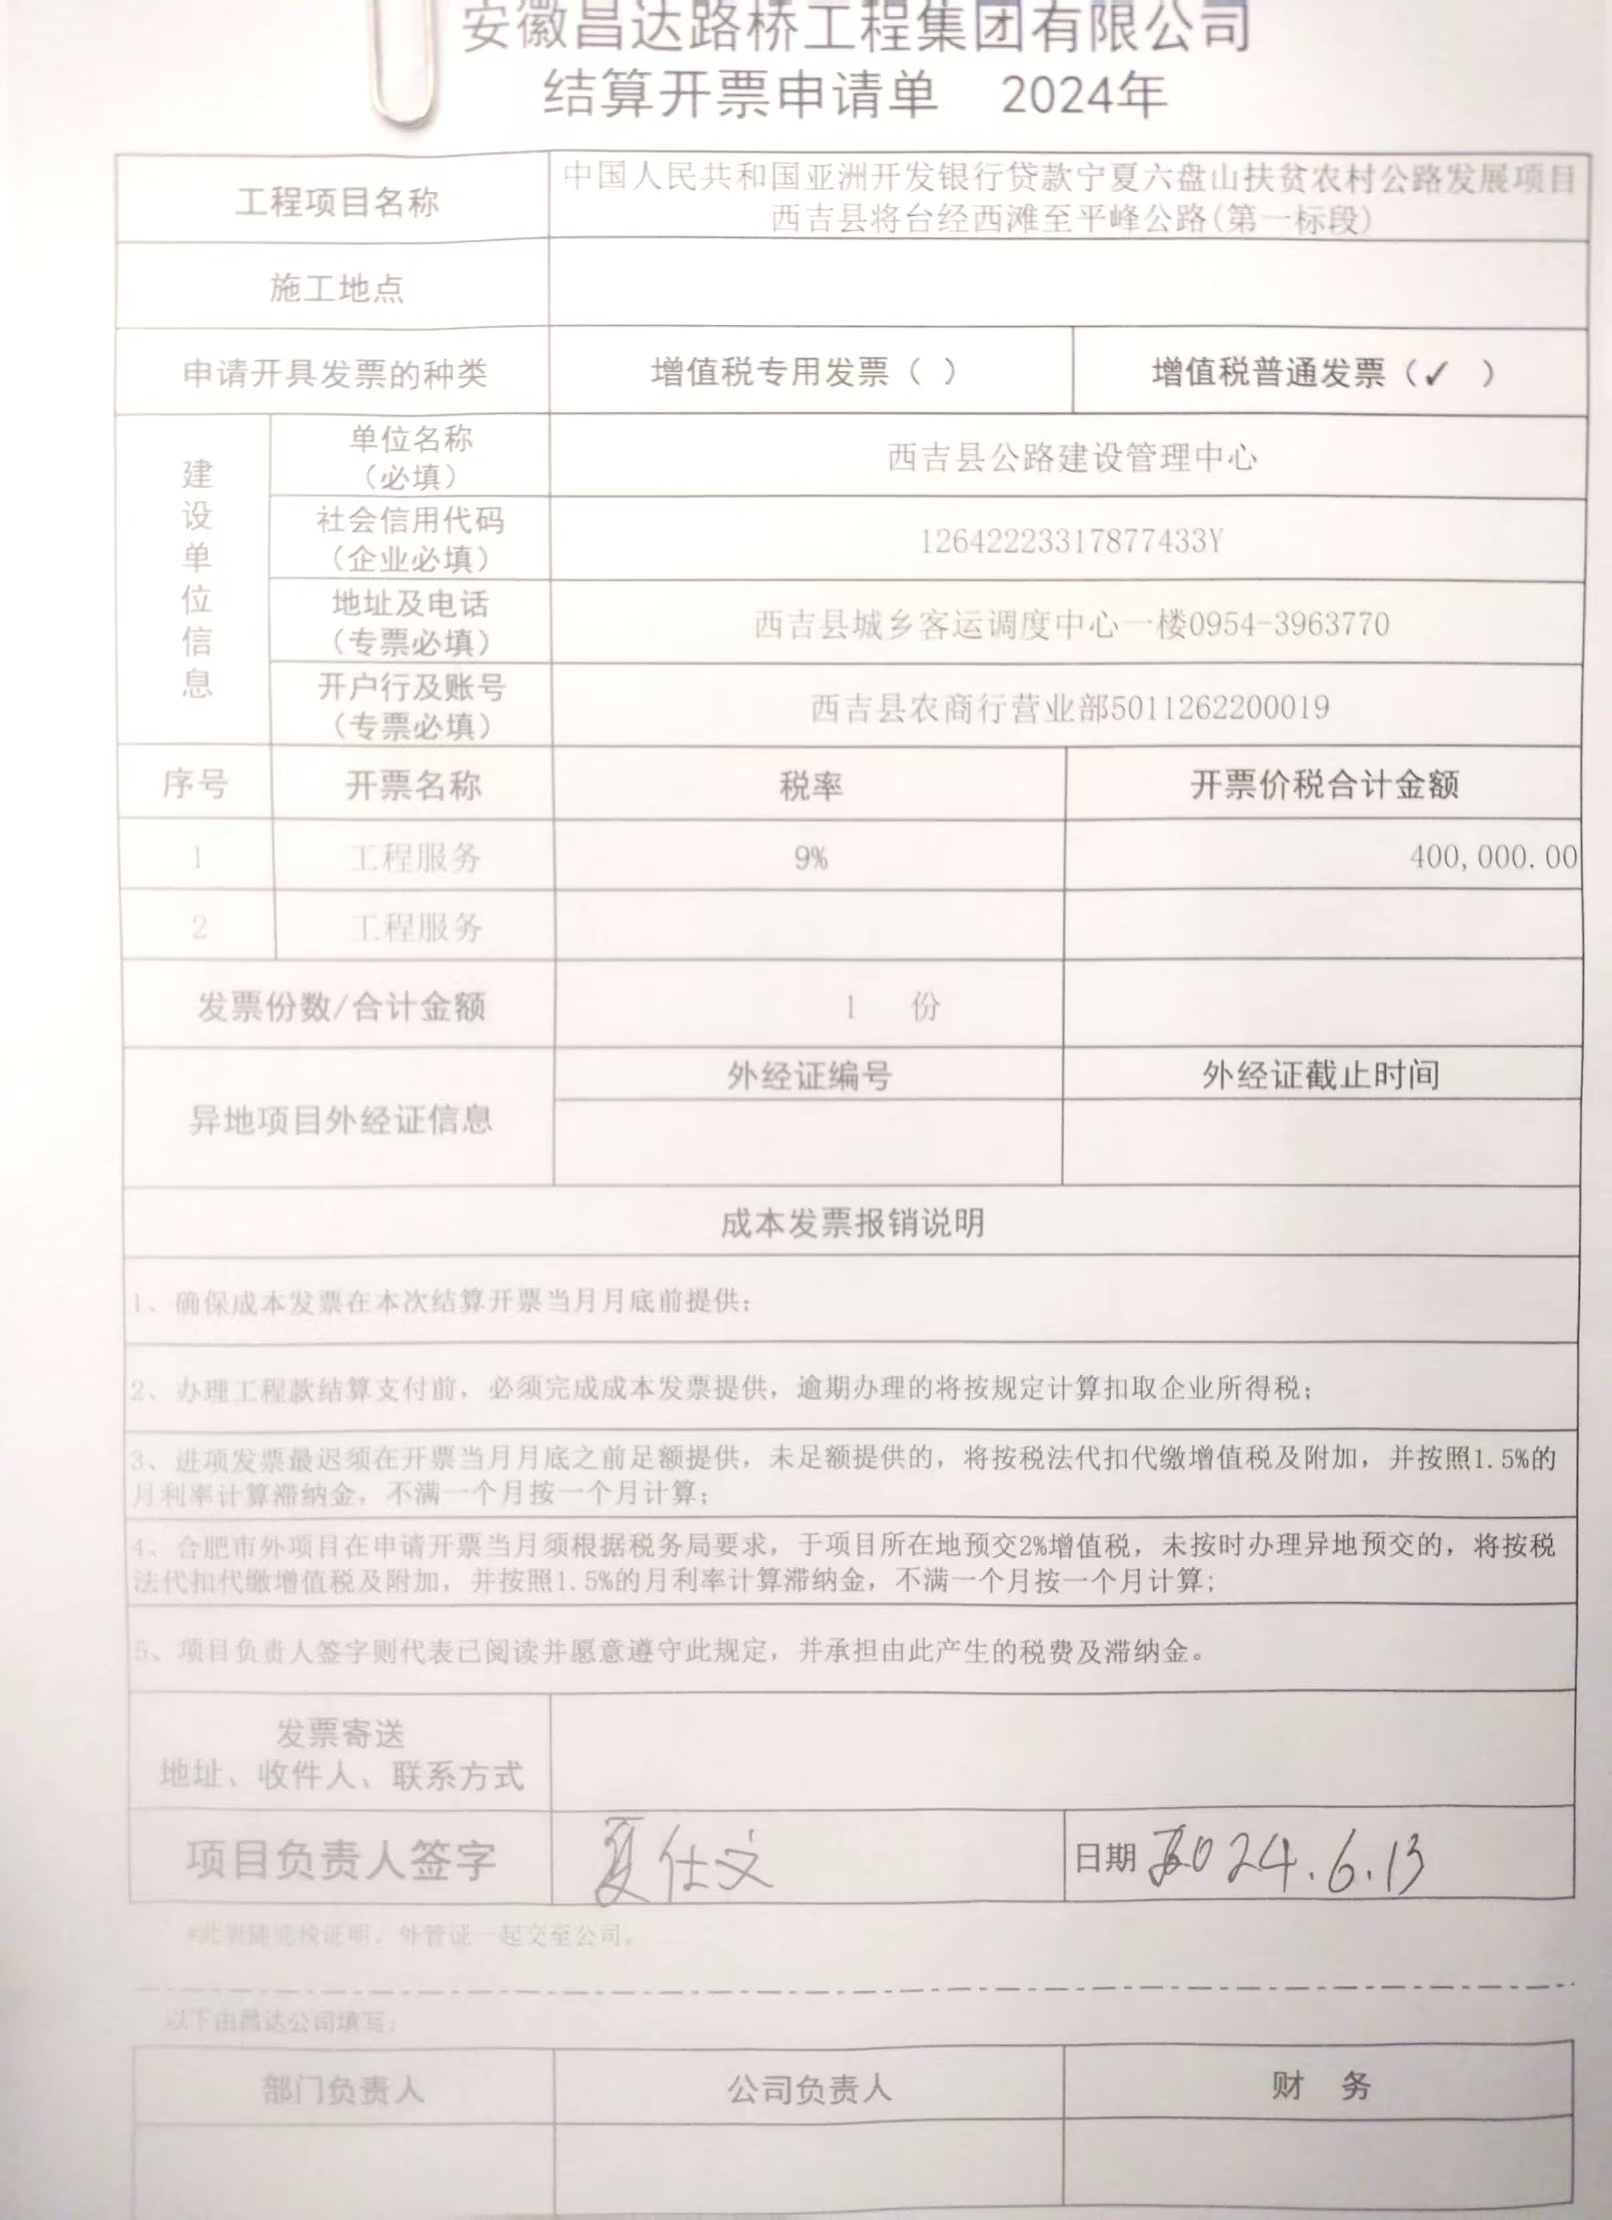 安徽昌达路桥工程集团有限公司
结算开票申请单 2024年
工程项目名称
中国人民共和国亚洲开发银行贷款宁夏六盘山扶贫农村公路发展项目
西吉县将台经西滩至平峰公路(第一标段)
施工地点
申请开具发票的种类
增值税专用发票（ ）
增值税普通发票（✓ ）
建设单位信息
单位名称
（必填）
西吉县公路建设管理中心
社会信用代码
（企业必填）
12642223317877433Y
地址及电话
（专票必填）
西吉县城乡客运调度中心一楼0954-3963770
开户行及账号
（专票必填）
西吉县农商行营业部5011262200019
序号 开票名称 税率 开票价税合计金额
1 工程服务 9% 400,000.00
2 工程服务
发票份数/合计金额 1 份
异地项目外经证信息
外经证编号 外经证截止时间
成本发票报销说明
1、确保成本发票在本次结算开票当月月底前提供；
2、办理工程款结算支付前，必须完成成本发票提供，逾期办理的将按规定计算扣取企业所得税；
3、进项发票最迟须在开票当月月底之前足额提供，未足额提供的，将按税法代扣代缴增值税及附加，并按照1.5%的
月利率计算滞纳金，不满一个月按一个月计算；
4、合肥市外项目在申请开票当月须根据税务局要求，于项目所在地预交2%增值税，未按时办理异地预交的，将按税
法代扣代缴增值税及附加，并按照1.5%的月利率计算滞纳金，不满一个月按一个月计算；
5、项目负责人签字则代表已阅读并愿意遵守此规定，并承担由此产生的税费及滞纳金。
发票寄送
地址、收件人、联系方式
项目负责人签字 夏仕文 日期 2024.6.13
*此表随完税证明、外管证一起交至公司。
以下由昌达公司填写：
部门负责人 公司负责人 财 务